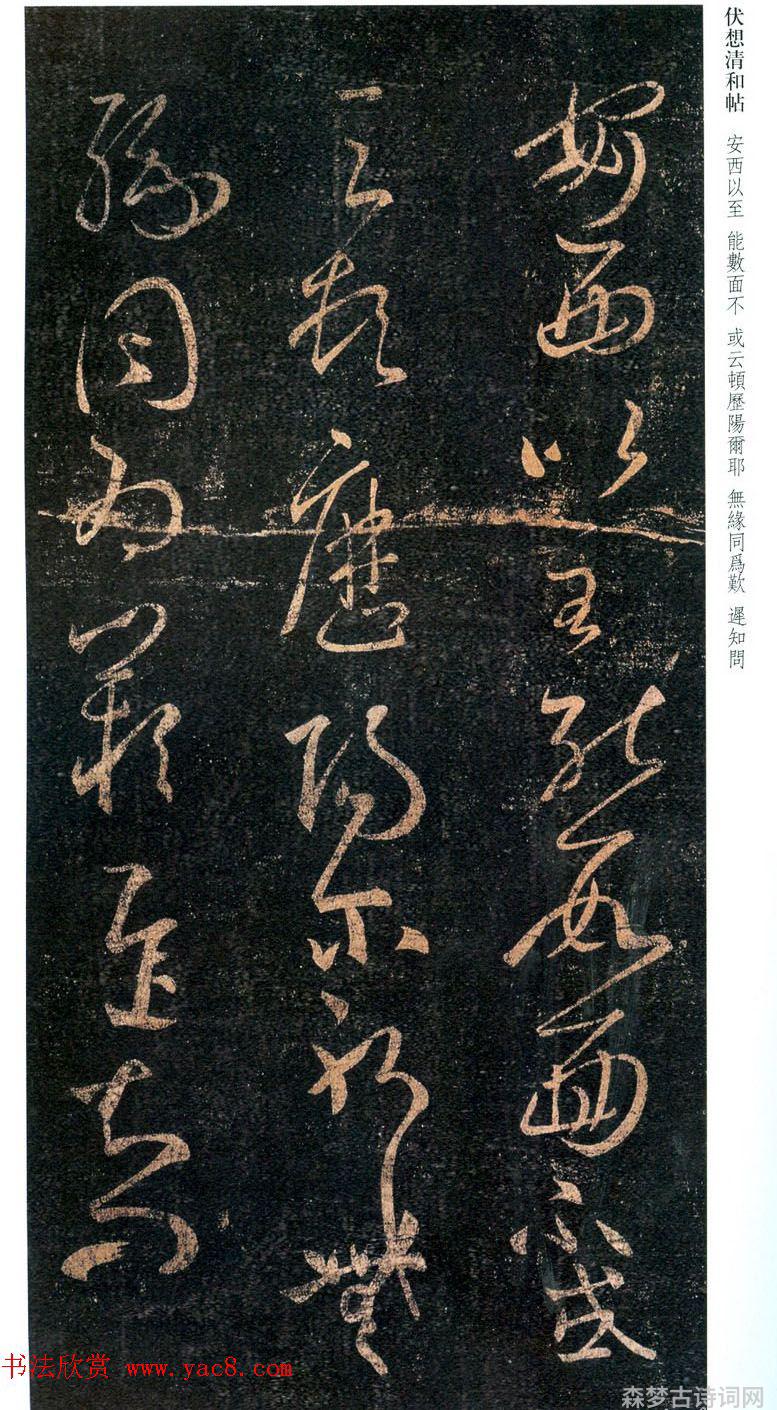 伏想清和帖 安西以至 能數面不 或云頓歷陽爾耶 無緣同爲歎 遲知問
安西以至能數面不或
云頓歷陽爾耶無
緣同爲歎遲知問
书法欣赏 www.yac8.com
森梦古诗词网